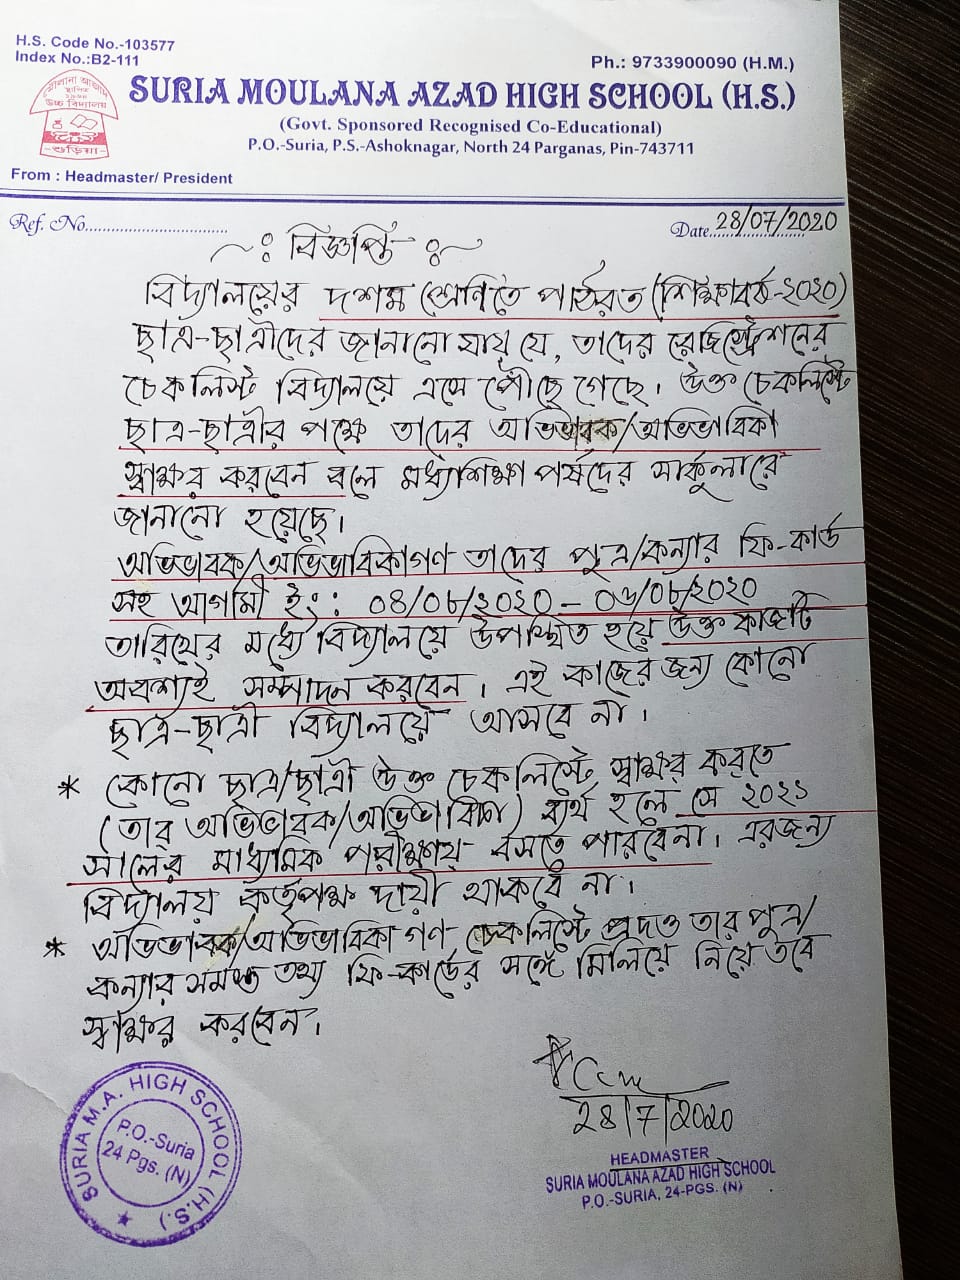 H.S. Code No.-103577
Index No.:B2-111
Ph.: 9733900090 (H.M.)
মৌলানা আজাদ
স্থাপিত
উচ্চ বিদ্যালয়
-শুড়িয়া-
SURIA MOULANA AZAD HIGH SCHOOL (H.S.)
(Govt. Sponsored Recognised Co-Educational)
P.O.-Suria, P.S.-Ashoknagar, North 24 Parganas, Pin-743711
From : Headmaster/ President
Ref. No.................................
Date...28/07/2020
~ঃ বিজ্ঞপ্তি ঃ~
বিদ্যালয়ের দশম শ্রেণিতে পাঠরত (শিক্ষাবর্ষ-২০২০)
ছাত্র-ছাত্রীদের জানানো যায় যে, তাদের রেজিস্ট্রেশনের
চেকলিস্ট বিদ্যালয়ে এসে পৌঁছে গেছে। উক্ত চেকলিস্টে
ছাত্র-ছাত্রীর পক্ষে তাদের অভিভাবক/অভিভাবিকা
স্বাক্ষর করবেন বলে মধ্যশিক্ষা পর্ষদের সার্কুলারে
জানানো হয়েছে।
অভিভাবক/অভিভাবিকাগণ তাদের পুত্র/কন্যার ফি-কার্ড
সহ আগামী ইং: ০৪/০৮/২০২০ - ০৬/০৮/২০২০
তারিখের মধ্যে বিদ্যালয়ে উপস্থিত হয়ে উক্ত কাজটি
অবশ্যই সম্পাদন করবেন। এই কাজের জন্য কোনো
ছাত্র-ছাত্রী বিদ্যালয়ে আসবে না।
* কোনো ছাত্র/ছাত্রী উক্ত চেকলিস্টে স্বাক্ষর করতে
(তার অভিভাবক/অভিভাবিকা) ব্যর্থ হলে সে ২০২১
সালের মাধ্যমিক পরীক্ষায় বসতে পারবেনা। এরজন্য
বিদ্যালয় কর্তৃপক্ষ দায়ী থাকবে না।
* অভিভাবক/অভিভাবিকাগণ চেকলিস্টে প্রদত্ত তার পুত্র/
কন্যার সমস্ত তথ্য ফি-কার্ডের সঙ্গে মিলিয়ে নিয়ে তবে
স্বাক্ষর করবেন।
28/7/2020
HEADMASTER
SURIA MOULANA AZAD HIGH SCHOOL
P.O.-SURIA, 24-PGS. (N)
SURIA M.A. HIGH SCHOOL (H.S.)
P.O.-Suria
24 Pgs. (N)